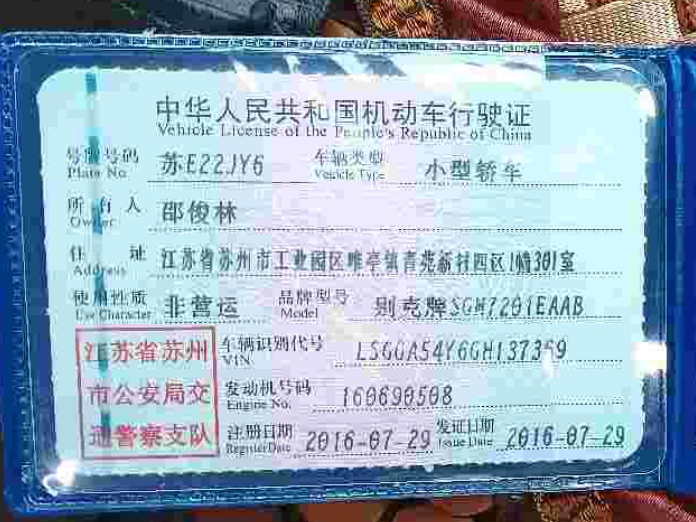 中华人民共和国机动车行驶证
Vehicle License of the People's Republic of China
号牌号码 苏E22JY6 车辆类型 小型轿车
Plate No. Vehicle Type
所有人 邵俊林
Owner
住址 江苏省苏州市工业园区唯亭镇青苑新村四区1幢301室
Address
使用性质 非营运 品牌型号 别克牌SGM7201EAAB
Use Character Model
江苏省苏州 车辆识别代号 LSGGA54Y6GH137359
VIN
市公安局交 发动机号码 160690508
Engine No.
通警察支队 注册日期 2016-07-29 发证日期 2016-07-29
Register Date Issue Date